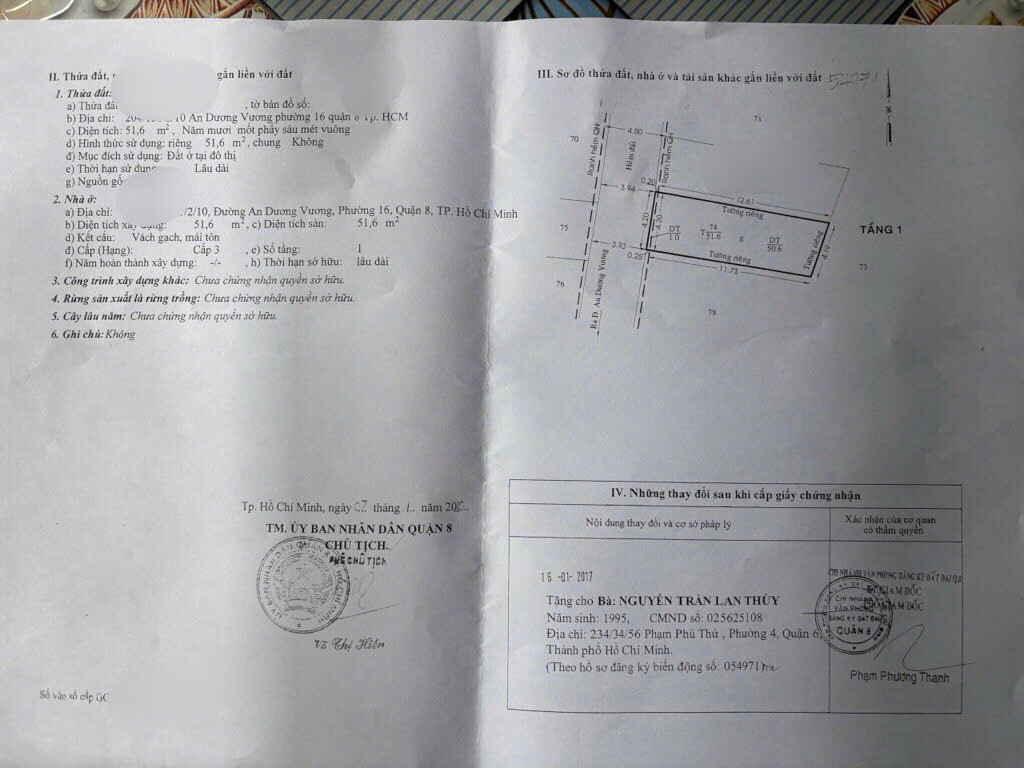 II. Thửa đất, gắn liền với đất
1. Thửa đất:
a) Thửa đất , tờ bản đồ số:
b) Địa chỉ: /10 An Dương Vương phường 16 quận 8 Tp. HCM
c) Diện tích: 51,6 m², Năm mươi mốt phẩy sáu mét vuông
d) Hình thức sử dụng: riêng 51,6 m², chung Không
đ) Mục đích sử dụng: Đất ở tại đô thị
e) Thời hạn sử dụng Lâu dài
g) Nguồn gốc
2. Nhà ở:
a) Địa chỉ: /2/10, Đường An Dương Vương, Phường 16, Quận 8, TP. Hồ Chí Minh
b) Diện tích xây dựng: 51,6 m², c) Diện tích sàn: 51,6 m²
d) Kết cấu: Vách gạch, mái tôn
đ) Cấp (Hạng): Cấp 3 , e) Số tầng: 1
f) Năm hoàn thành xây dựng: -/- , h) Thời hạn sở hữu: lâu dài
3. Công trình xây dựng khác: Chưa chứng nhận quyền sở hữu.
4. Rừng sản xuất là rừng trồng: Chưa chứng nhận quyền sở hữu.
5. Cây lâu năm: Chưa chứng nhận quyền sở hữu.
6. Ghi chú: Không
Tp. Hồ Chí Minh, ngày 07 tháng năm 20
TM. ỦY BAN NHÂN DÂN QUẬN 8
CHỦ TỊCH
PHÓ CHỦ TỊCH
Số vào sổ cấp GC
III. Sơ đồ thửa đất, nhà ở và tài sản khác gắn liền với đất
70
71
4.60
Ranh hẻm QH
Hẻm đất
Ranh hẻm QH
3.94
0.20
12.61
Tường riêng
75
4.20
4.20
ĐT
1.0
T 74
51.6
g
ĐT
50.6
Tường riêng
4.19
TẦNG 1
73
3.93
0.25
Tường riêng
11.73
76
Ra Đ. An Dương Vương
78
IV. Những thay đổi sau khi cấp giấy chứng nhận
Nội dung thay đổi và cơ sở pháp lý
Xác nhận của cơ quan
có thẩm quyền
16 -01- 2017
Tặng cho Bà: NGUYỄN TRẦN LAN THÙY
Năm sinh: 1995, CMND số: 025625108
Địa chỉ: 234/34/56 Phạm Phú Thứ , Phường 4, Quận 6,
Thành phố Hồ Chí Minh.
(Theo hồ sơ đăng ký biến động số: 054971)
CHI NHÁNH VĂN PHÒNG ĐĂNG KÝ ĐẤT ĐAI
GIÁM ĐỐC
PHÓ GIÁM ĐỐC
CHI NHÁNH
VĂN PHÒNG
ĐĂNG KÝ ĐẤT ĐAI
QUẬN 8
Phạm Phương Thanh